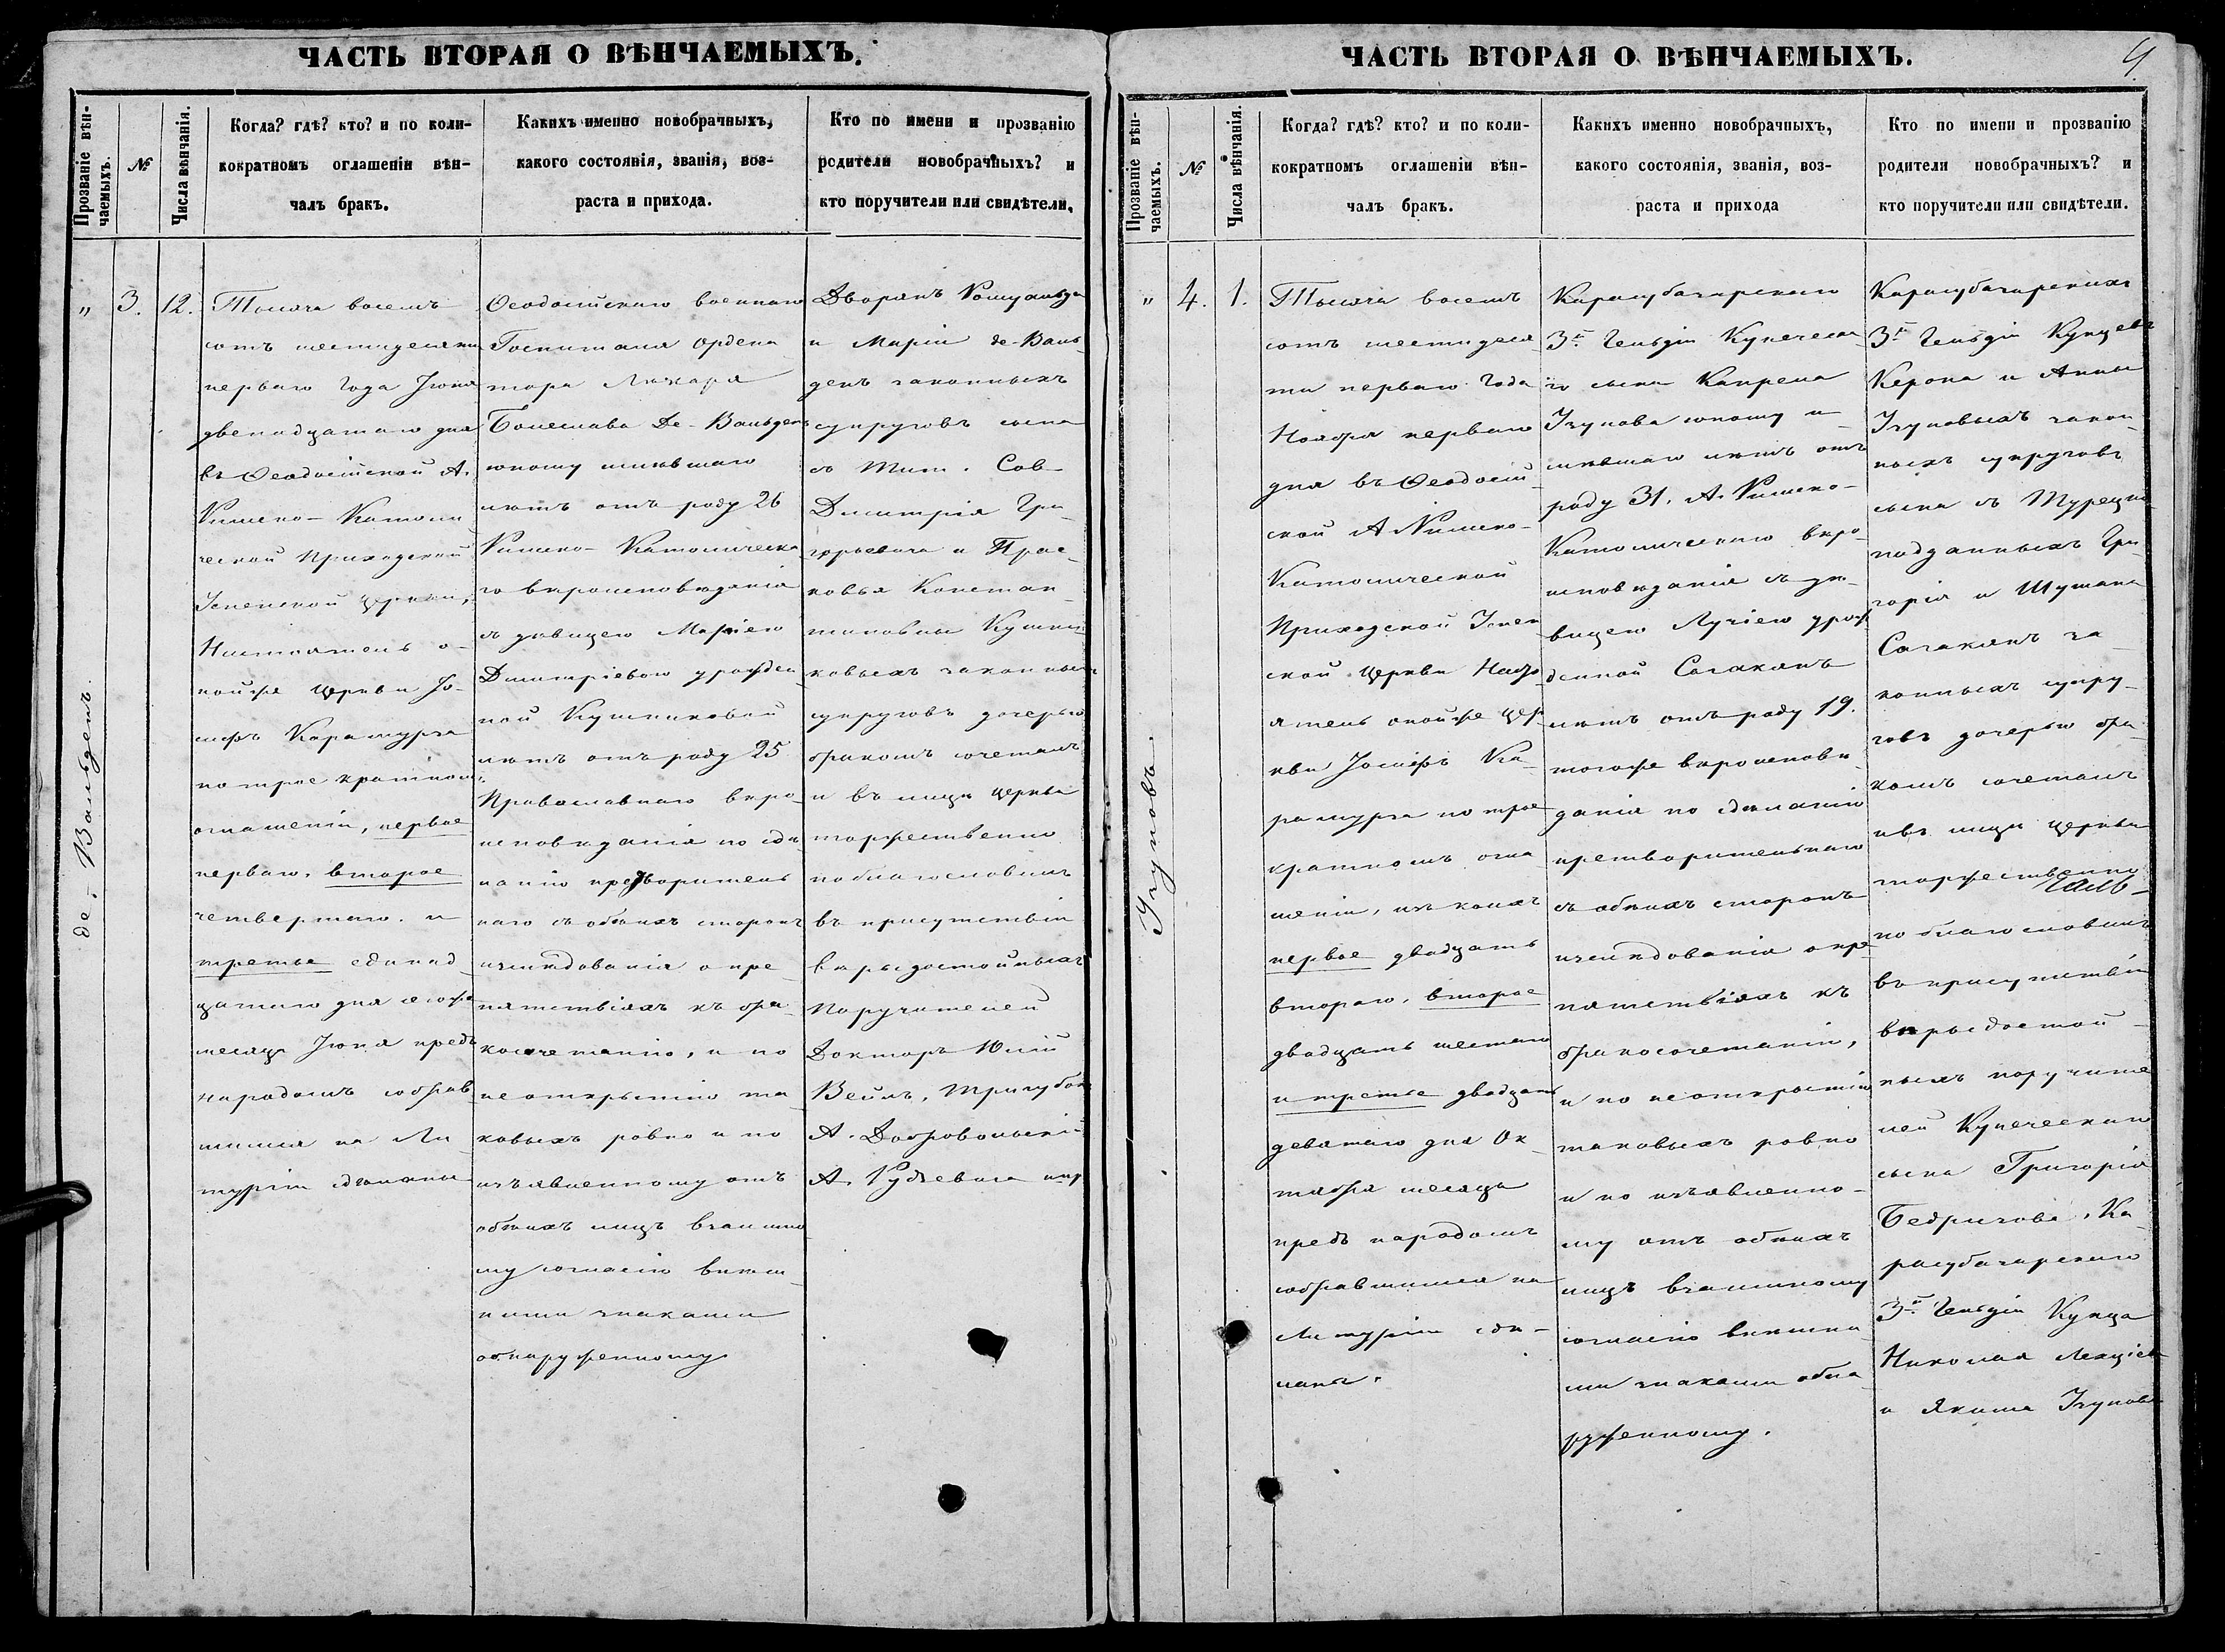 ЧАСТЬ ВТОРАЯ О ВѢНЧАЕМЫХЪ.
Прозваніе вѣн-
чаемыхъ.
№
Числа вѣнчанія.
Когда? гдѣ? кто? и по коли-
кократномъ оглашеніи вѣн-
чалъ бракъ.
Какихъ именно новобрачныхъ,
какого состоянія, званія, воз-
раста и прихода.
Кто по имени и прозванію
родители новобрачныхъ? и
кто поручители или свидѣтели.
де-Вальденъ.
" 3. 12.
Тысяча восемь
сотъ шестидесяти
перваго Года Іюня
двенадцатаго дня
въ Ѳеодосійской А.
Римско-Католи
ческой Приходской
Успенской Церкви,
Настоятель о-
нойже Церкви Іо-
сифъ Карамурза
по трое кратномъ
оглашеніи, первое
перваго, второе
четвертаго. и
третье единад
цатаго дня сегоже
месяца Іюня предъ
народомъ собрав
шимся на Ли
тургіи сдѣланы
Ѳеодосійскаго военнаго
Госпиталя Ордена
тора Лекаря
Болеслава Де-Вальденъ
юношу имѣвшаго
лѣтъ отъ роду 26
Римско-Католическа
го вѣроисповѣданія
съ дѣвицею Маріею
Дмитріевою урожден
ной Кушниковой
лѣтъ отъ роду 25
Православнаго вѣро
исповѣданія по сдѣ
ланію предварительъ
наго съ обѣихъ сторонъ
изслѣдованія о пре
пятствіяхъ къ бра
косочетанію, и по
неоткрытію та
ковыхъ ровно и по
изъявленному отъ
обѣихъ лицъ взаимно
му согласію внѣш
ними знаками
обнаруженному
Дворянъ Ромуальда
и Маріи де-Валь
денъ законныхъ
супруговъ сына
съ Тит. Сов-
Дмитрія Гри
горьевича и Прас
ковья Констан
тиновны Кушни
ковыхъ законныхъ
супруговъ дочерью
бракомъ сочеталъ
и въ лицѣ Церкви
торжественно
поблагословилъ
въ присутствіи
вѣрыдостойныхъ
Поручителей
Докторъ Юлій
Вейль,
А. Добровольскій
ЧАСТЬ ВТОРАЯ О ВѢНЧАЕМЫХЪ.
4.
Прозваніе вѣн-
чаемыхъ.
№
Числа вѣнчанія.
Когда? гдѣ? кто? и по коли-
кократномъ оглашеніи вѣн-
чалъ бракъ.
Какихъ именно новобрачныхъ,
какого состоянія, званія, воз-
раста и прихода
Кто по имени и прозванію
родители новобрачныхъ? и
кто поручители или свидѣтели.
Узуповъ.
" 4. 1.
Тысяча восемь
сотъ шестидеся
ти перваго Года
Ноября перваго
дня въ Ѳеодосій
ской А Римско-
Католической
Приходской Успен
ской Церкви Насто
ятель онойже Цер
кви Іосифъ Ка
рамурза по трое
кратномъ огла
шеніи, изъ коихъ
первое двадцать
втораго, второе
двадцать шестаго
и третье двадцать
девятаго дня Ок
тября месяца
предъ народомъ
собравшимся на
Литургіи сдѣ-
ланы.
Карасубазарскаго
3й Гильдіи Купеческа
го сына
Узупова юношу и
мѣвшаго лѣтъ отъ
роду 31. А. Римско-
Католическаго вѣро
исповѣданія съ дѣ
вицею Лучіею урож
денной Сагакянъ
лѣтъ отъ роду 19.
тогоже вѣроисповѣ
данія по сдѣланіи
предварительнаго
съ обѣихъ сторонъ
изслѣдованія о пре
пятствіяхъ къ
бракосочетанію,
и по неоткрытію
таковыхъ ровно
и по изъявленно
му отъ обѣихъ
лицъ взаимному
согласію внѣшни
ми знаками обна
руженному.
Карасубазарскихъ
3й Гильдіи Купцевъ
Керопа и Анны
Узуповыхъ закон
ныхъ супруговъ
сына съ Турецко
подданныхъ Гри
горія и Шушана
Сагакянъ за
конныхъ супру
говъ дочерью бра
комъ сочеталъ
ивъ лицѣ Церкви
торжественно
поблагословилъ
въ присутствіи
вѣрыдостой
ныхъ поручите
лей Купеческаго
сына Григорія
Бедризова, Ка
расубазарскаго
3й Гильдіи Купца
Николая
и Якима Узупова